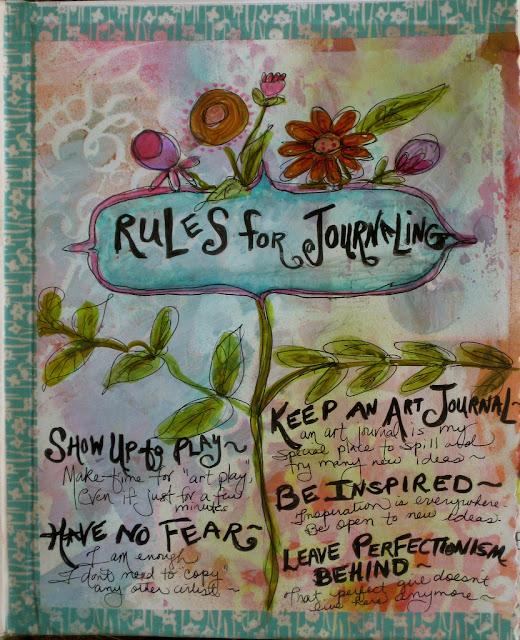 RULES FOR JOURNALING
SHOW UP to PLAY~
Make time for "art play"
Even if just for a few
minutes
HAVE NO FEAR~
I am enough
I don't need to "copy"
any other artist~
KEEP AN ART JOURNAL~
an art journal is my
special place to spill and
try many new ideas~
BE INSPIRED~
Inspiration is everywhere
Be open to new Ideas.
LEAVE PERFECTIONISM
BEHIND~
That perfect doesn't
live here anymore~